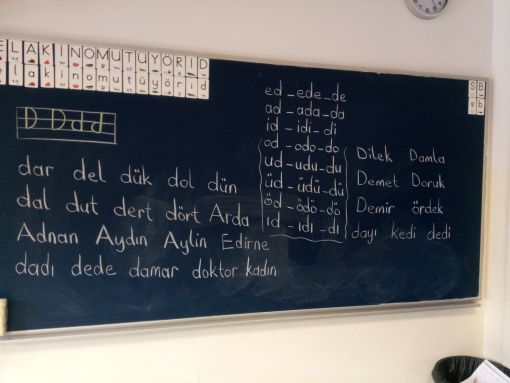 E L A K İ N O M U T Ü Y Ö R I D
e l a k i n o m u t ü y ö r ı d
S B
s b
D D d d
ed - ede - de
ad - ada - da
id - idi - di
od - odo - do
ud - udu - du
üd - üdü - dü
öd - ödö - dö
ıd - ıdı - dı
dar del dük dol dün
dal dut dert dört Arda
Adnan Aydın Aylin Edirne
dadı dede damar doktor kadın
Dilek Damla
Demet Doruk
Demir ördek
dayı kedi dedi